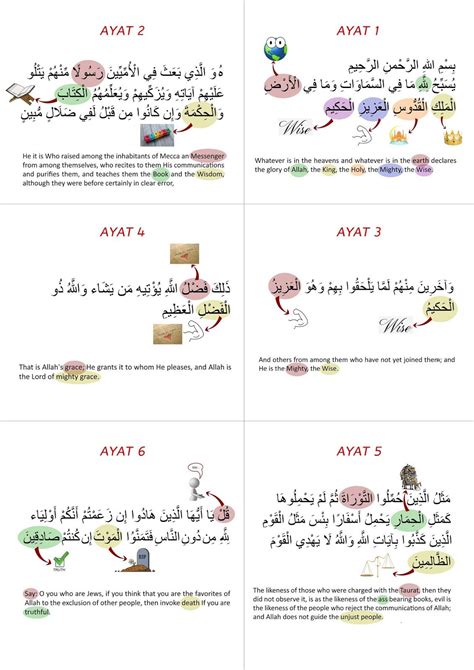 AYAT 1
بِسْمِ اللهِ الرَّحْمنِ الرَّحِيمِ
يُسَبِّحُ لِلَّهِ مَا فِي السَّمَاوَاتِ وَمَا فِي الْأَرْضِ
الْمَلِكِ الْقُدُّوسِ الْعَزِيزِ الْحَكِيمِ
Wise
Whatever is in the heavens and whatever is in the earth declares
the glory of Allah, the King, the Holy, the Mighty, the Wise.
AYAT 2
هُ وَ الَّذِي بَعَثَ فِي الْأُمِّيِّينَ رَسُولًا مِّنْهُمْ يَتْلُو
عَلَيْهِمْ آيَاتِهِ وَيُزَكِّيهِمْ وَيُعَلِّمُهُمُ الْكِتَابَ
وَالْحِكْمَةَ وَإِن كَانُوا مِن قَبْلُ لَفِي ضَلَالٍ مُّبِينٍ
He it is Who raised among the inhabitants of Mecca an Messenger
from among themselves, who recites to them His communications
and purifies them, and teaches them the Book and the Wisdom,
although they were before certainly in clear error,
AYAT 3
وَآخَرِينَ مِنْهُمْ لَمَّا يَلْحَقُوا بِهِمْ وَهُوَ الْعَزِيزُ
الْحَكِيمُ
Wise
And others from among them who have not yet joined them; and
He is the Mighty, the Wise.
AYAT 4
ذَلِكَ فَضْلُ اللَّهِ يُؤْتِيهِ مَن يَشَاء وَاللَّهُ ذُو
الْفَضْلِ الْعَظِيمِ
That is Allah's grace; He grants it to whom He pleases, and Allah is
the Lord of mighty grace.
AYAT 5
مَثَلُ الَّذِينَ حُمِّلُوا التَّوْرَاةَ ثُمَّ لَمْ يَحْمِلُوهَا
كَمَثَلِ الْحِمَارِ يَحْمِلُ أَسْفَارًا بِئْسَ مَثَلُ الْقَوْمِ
الَّذِينَ كَذَّبُوا بِآيَاتِ اللَّهِ وَاللَّهُ لَا يَهْدِي الْقَوْمَ
الظَّالِمِينَ
The likeness of those who were charged with the Taurat, then they
did not observe it, is as the likeness of the ass bearing books, evil is
the likeness of the people who reject the communications of Allah;
and Allah does not guide the unjust people.
AYAT 6
قُلْ يَا أَيُّهَا الَّذِينَ هَادُوا إِن زَعَمْتُمْ أَنَّكُمْ أَوْلِيَاء
لِلَّهِ مِن دُونِ النَّاسِ فَتَمَنَّوُا الْمَوْتَ إِن كُنتُمْ صَادِقِينَ
TRUTH
RIP
Say: O you who are Jews, if you think that you are the favorites of
Allah to the exclusion of other people, then invoke death If you are
truthful.